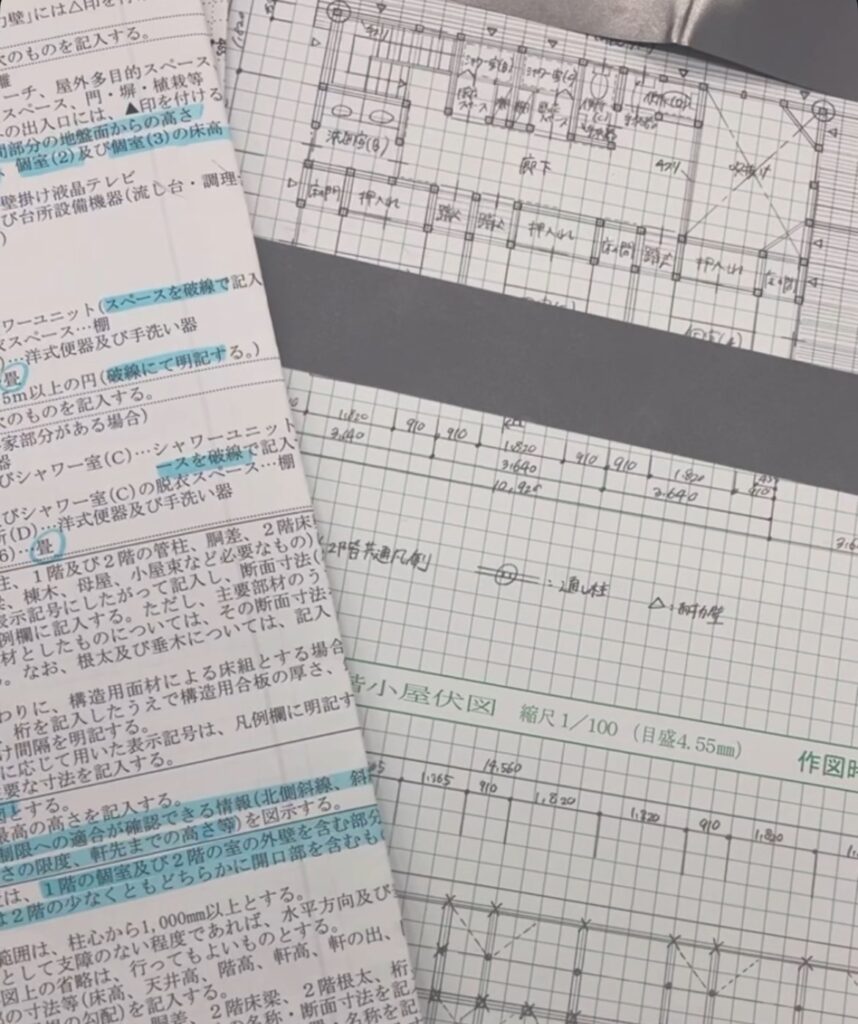 力壁」には△印を付
次のものを記入する。
ーチ、屋外多目的スペース
スペース、門・塀・植栽等
の出入口には、▲印を付ける
間部分の地盤面からの高さ
個室(2)及び個室(3)の床高
壁掛け液晶テレビ
び台所設備機器(流し台・調理
)
ワーユニット(スペースを破線で記入
衣スペース…棚
)…洋式便器及び手洗い器
畳
5m以上の円(破線にて明記する。)
次のものを記入する。
家部分がある場合)
器
びシャワー室(C)…シャワーユニット
ースを破線で記入
びシャワー室(C)の脱衣スペース…棚
所(D)…洋式便器及び手洗い器
6)…畳
柱、1階及び2階の管柱、胴差、2階床
梁、棟木、母屋、小屋束など必要なもの)
表示記号にしたがって記入し、断面寸法(
例欄に記入する。ただし、主要部材のう
材としたものについては、その断面寸法
。なお、根太及び垂木については、記入
わりに、構造用面材による床組とする場合
、桁を記入したうえで構造用合板の厚さ、
け間隔を明記する。
に応じて用いた表示記号は、凡例欄に明記す
要な寸法を記入する。
図とする。
最高の高さを記入する。
制限への適合が確認できる情報(北側斜線、斜
さの限度、軒先までの高さ等)を図示する。
は、1階の個室及び2階の室の外壁を含む部分
は2階の少なくともどちらかに開口部を含むも
範囲は、柱心から1,000mm以上とする。
として支障のない程度であれば、水平方向及び
図上の省略は、行ってもよいものとする。
の寸法等(床高、天井高、階高、軒高、軒の出、
の勾配)を記入する。
胴差、2階床梁、2階根太、桁
の名称・断面寸法を記
1,820
シャワー室(B)
シャワー室(C)
脱衣スペース
棚
棚
脱衣スペース
便所(C)
手洗器
便所(D)
洗面室(B)
廊下
手すり
吹抜け
床の間
押入れ
踏込
踏込
押入れ
床の間
踏込
押入れ
床の間
1,820
910
910
1,820
910
910
1,820
910
3,640
3,640
3,640
10,920
2階共通凡例
:通し柱
△:耐力壁
階小屋伏図 縮尺1/100 (目盛4.55mm)
作図時
14,560
1,365
910
1,820
1,820
910
1,820